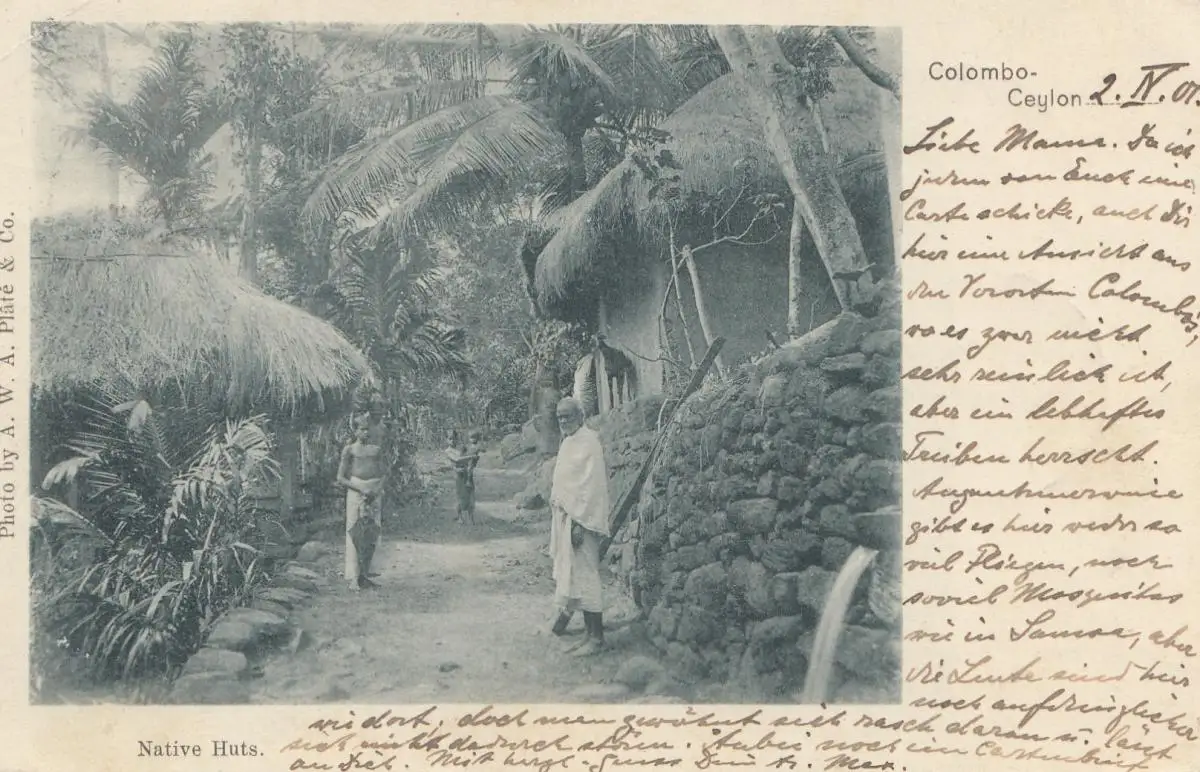 Photo by A. W. A. Plâté & Co.
Colombo-
Ceylon 2. IV. 01.
Liebe Mama. Da ich
jedem von Euch eine
Carte schicke, auch Dir
hier eine Ansicht aus
den Vororten Colombo's,
wo es zwar nicht
sehr reinlich ist,
aber ein lebhaftes
Treiben herrscht.
gibt es hier weder so
viel Fliegen, noch
soviel Mosquitos
wie in Samoa, aber
die Leute sind hier
noch aufdringlicher
wie dort, doch man gewöhnt sich rasch daran u. lässt
sich nicht dadurch stören. Anbei noch ein Cartenbrief
an Dich. Mit herzl. Gruss Dein tr. Max.
Native Huts.